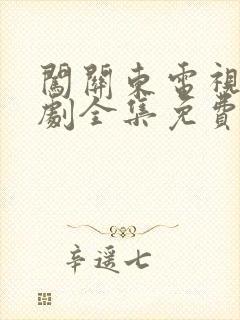 闖關東電視
劇全集免費
辛遥七